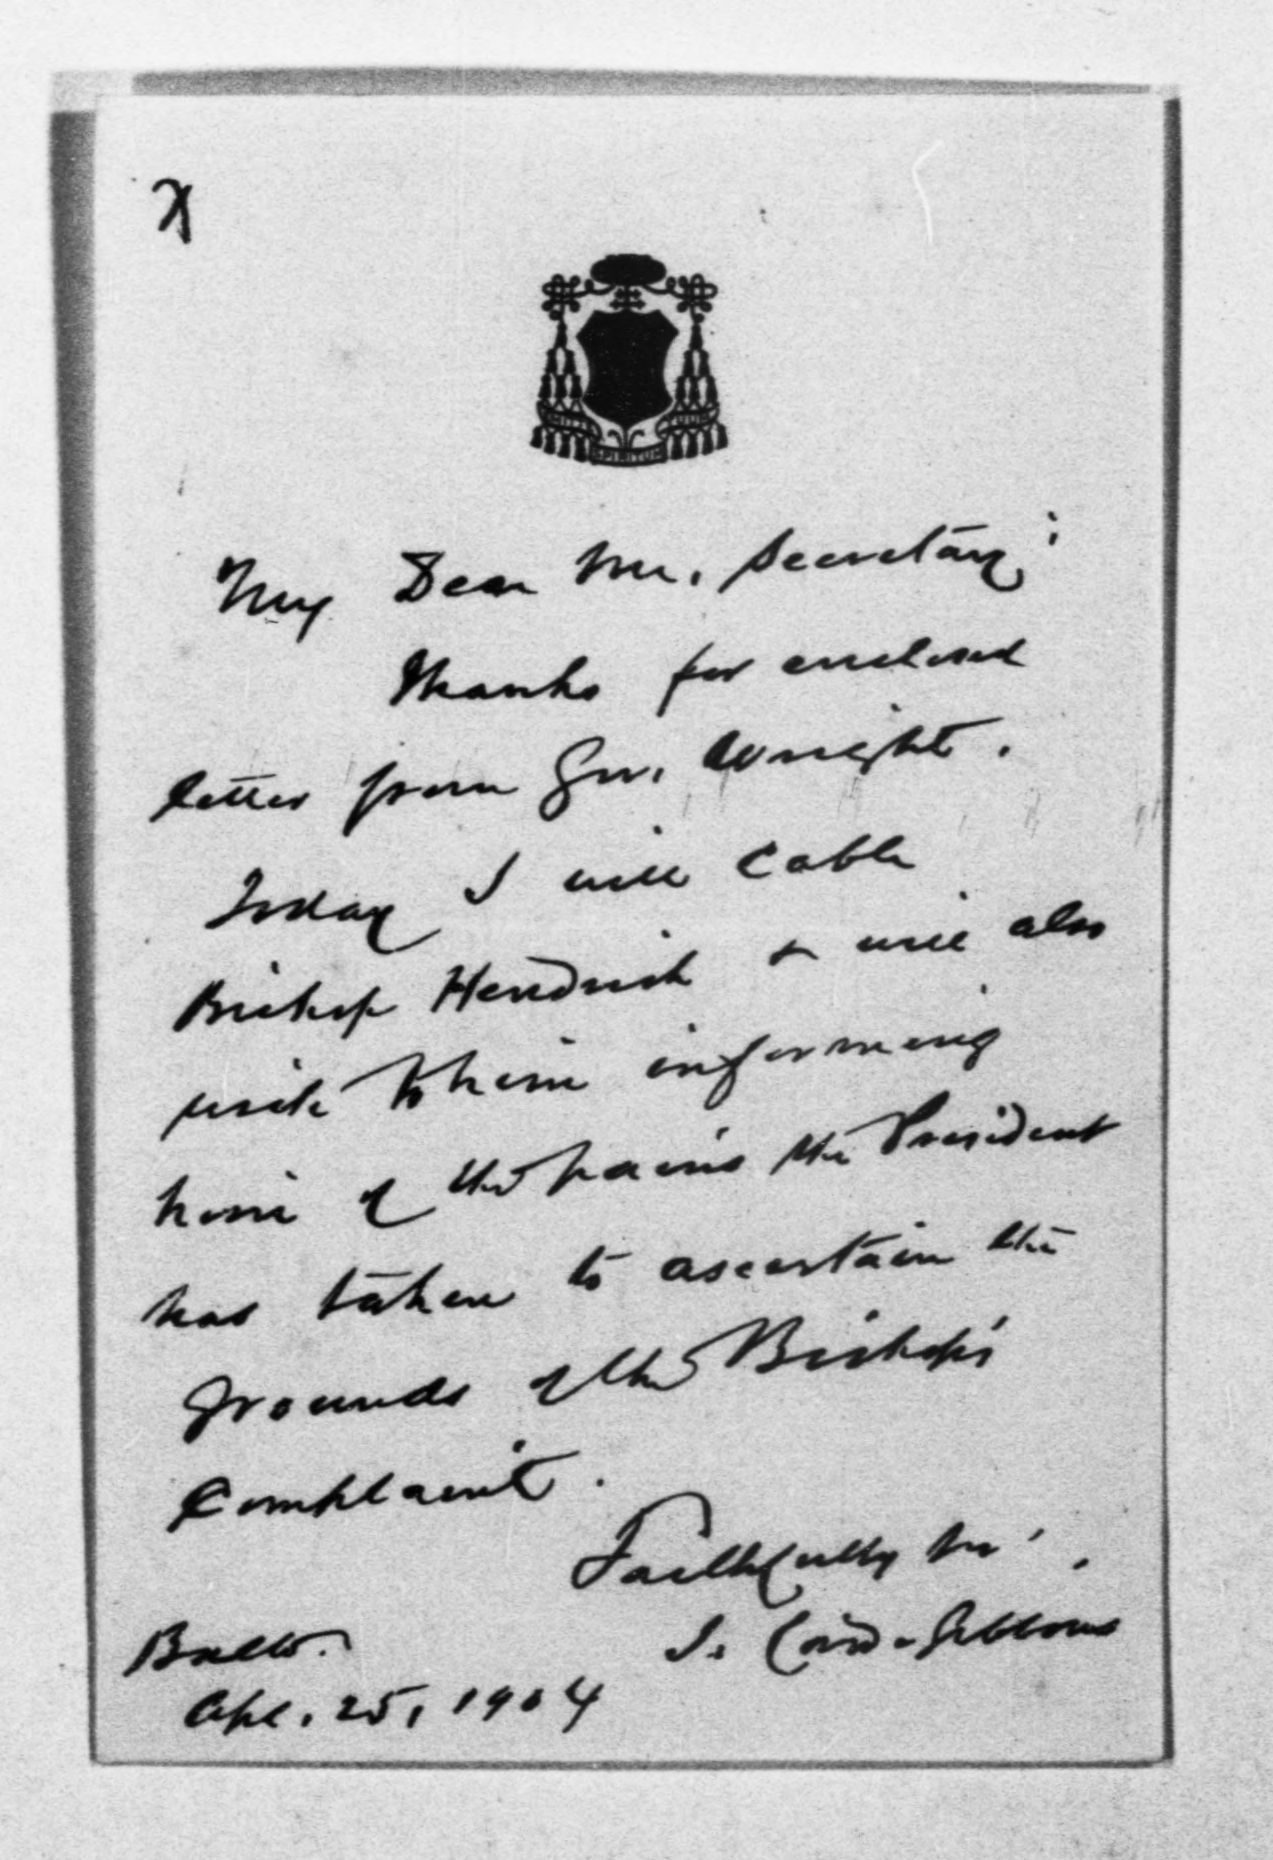 X
EMITTE SPIRITUM TUUM
My Dear Mr. Secretary:
Thanks for enclosed
letter from Gov. Wright.
Today I will Cable
Bishop Hendrick & will also
write to him informing
him of the pains the President
has taken to ascertain the
grounds of the Bishop's
Complaint.
Faithfully Yrs',
J. Card. Gibbons
Balto.
Apl. 25, 1904